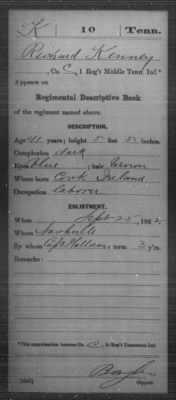 K 10 Tenn.
Richard Kenney
, Co. C, 1 Reg't Middle Tenn. Inf.*
Appears on
Regimental Descriptive Book
of the regiment named above.
DESCRIPTION.
Age 40 years; height 5 feet inches.
Complexion dark
Eyes blue; hair brown
Where born Cork Ireland
Occupation laborer
ENLISTMENT.
When Sept 25, 1862.
Where Nashville
By whom Capt; term 3 yrs.
Remarks:
*This organization became Co. , 10 Reg't Tennessee Inf.
Copyist.